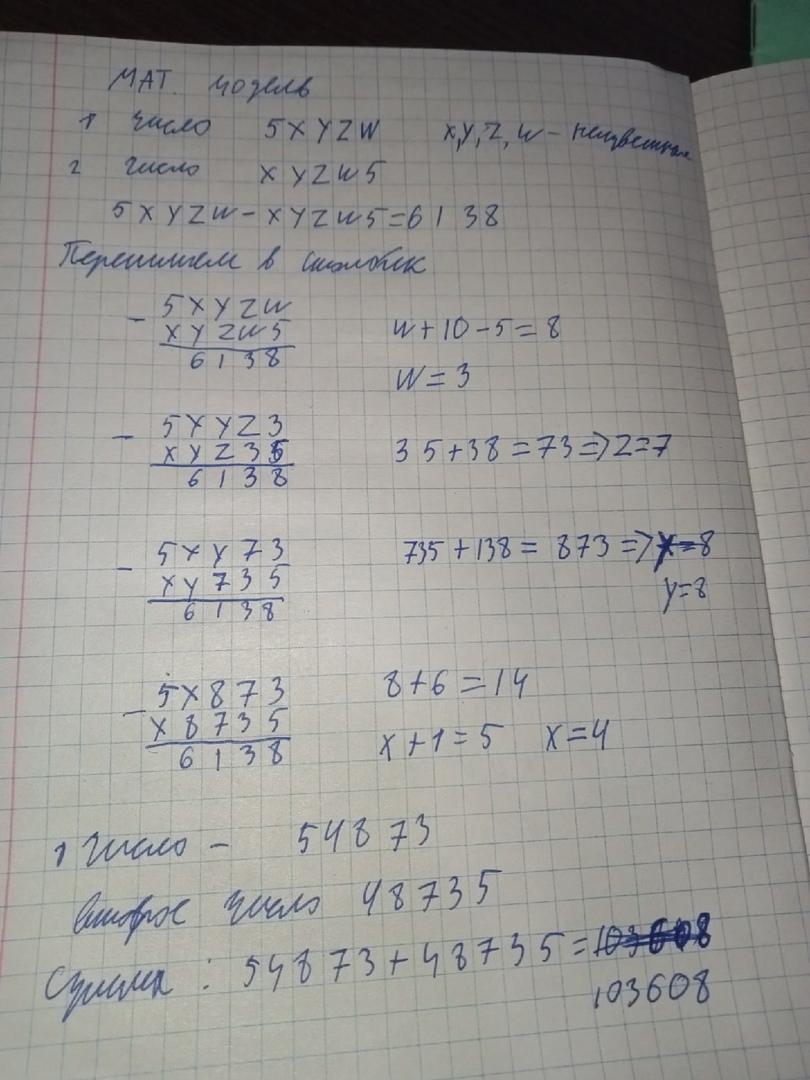 МАТ. модель
1 число 5XYZW X,Y,Z,W - неизвестные
2 число XYZW5
5XYZW-XYZW5=6138
Перепишем в столбик
- 5XYZW
XYZW5 W+10-5=8
6138 W=3
- 5XYZ3
XYZ35 35+38=73=>Z=7
6138
- 5XY73 735+138=873=>X=8
XY735 Y=8
6138
- 5X873 8+6=14
X8735 X+1=5 X=4
6138
1 число - 54873
второе число 48735
Сумма: 54873+48735=103608
103608